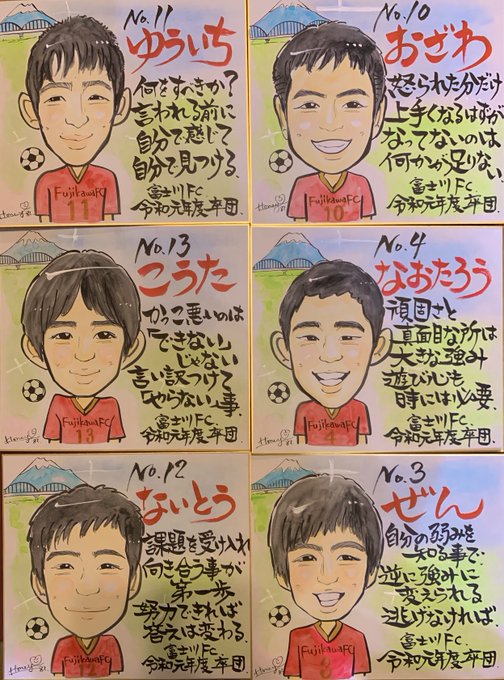 No.11
ゆういち
何をすべきか?
言われる前に
自分で感じて
自分で見つける.
富士川FC.
令和元年度卒団.
FujikawaFC
11
No.10
おざわ
怒られた分だけ
上手くなるはずが
なってないのは
何かが足りない.
富士川FC.
令和元年度卒団
FujikawaFC
10
No.13
こうた
かっこ悪いのは
「できない」
じゃない
言い訳つけて
「やらない」事.
富士川FC.
令和元年度卒団.
FujikawaFC
13
No.4
なおたろう
頑固さと
真面目な所は
大きな強み
遊び心も
時には必要
富士川FC.
令和元年度卒団.
FujikawaFC
4
No.12
ないとう
課題を受け入れ
向き合う事が
第一歩
努力できれば
答えは変わる.
富士川FC.
令和元年度卒団
FujikawaFC
12
No.3
ぜん
自分の弱みを
知る事で.
逆に強みに
変えられる
逃げなければ.
富士川FC.
令和元年度卒団
FujikawaFC
3